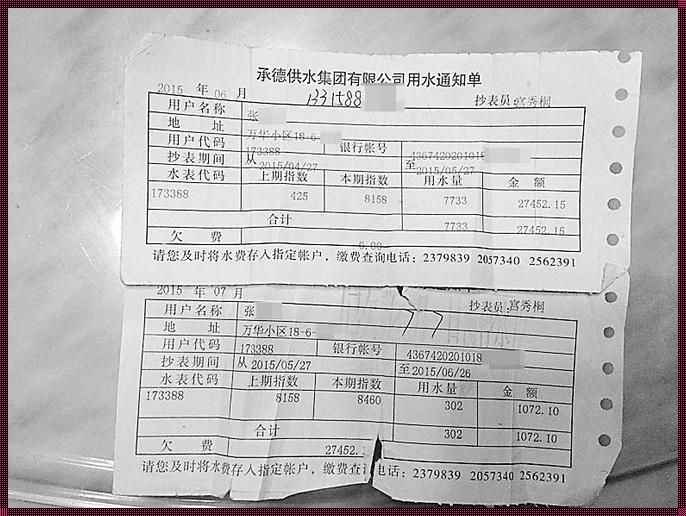 承德供水集团有限公司用水通知单
2015 年 06 月 1331588 抄表员:宫秀桐
用户名称 张
地 址 万华小区18-6-
用户代码 173388 银行帐号 4367420201018
抄表期间 从 2015/04/27 至 2015/05/27
水表代码 上期指数 本期指数 用水量 金 额
173388 425 8158 7733 27452.15
合计 7733 27452.15
欠 费 0.00
请您及时将水费存入指定帐户，缴费查询电话：2379839 2057340 2562391
2015 年 07 月 抄表员:宫秀桐
用户名称 张
地 址 万华小区18-6-
用户代码 173388 银行帐号 4367420201018
抄表期间 从 2015/05/27 至 2015/06/26
水表代码 上期指数 本期指数 用水量 金 额
173388 8158 8460 302 1072.10
合计 302 1072.10
欠 费 27452.
请您及时将水费存入指定帐户，缴费查 电话：2379839 2057340 2562391